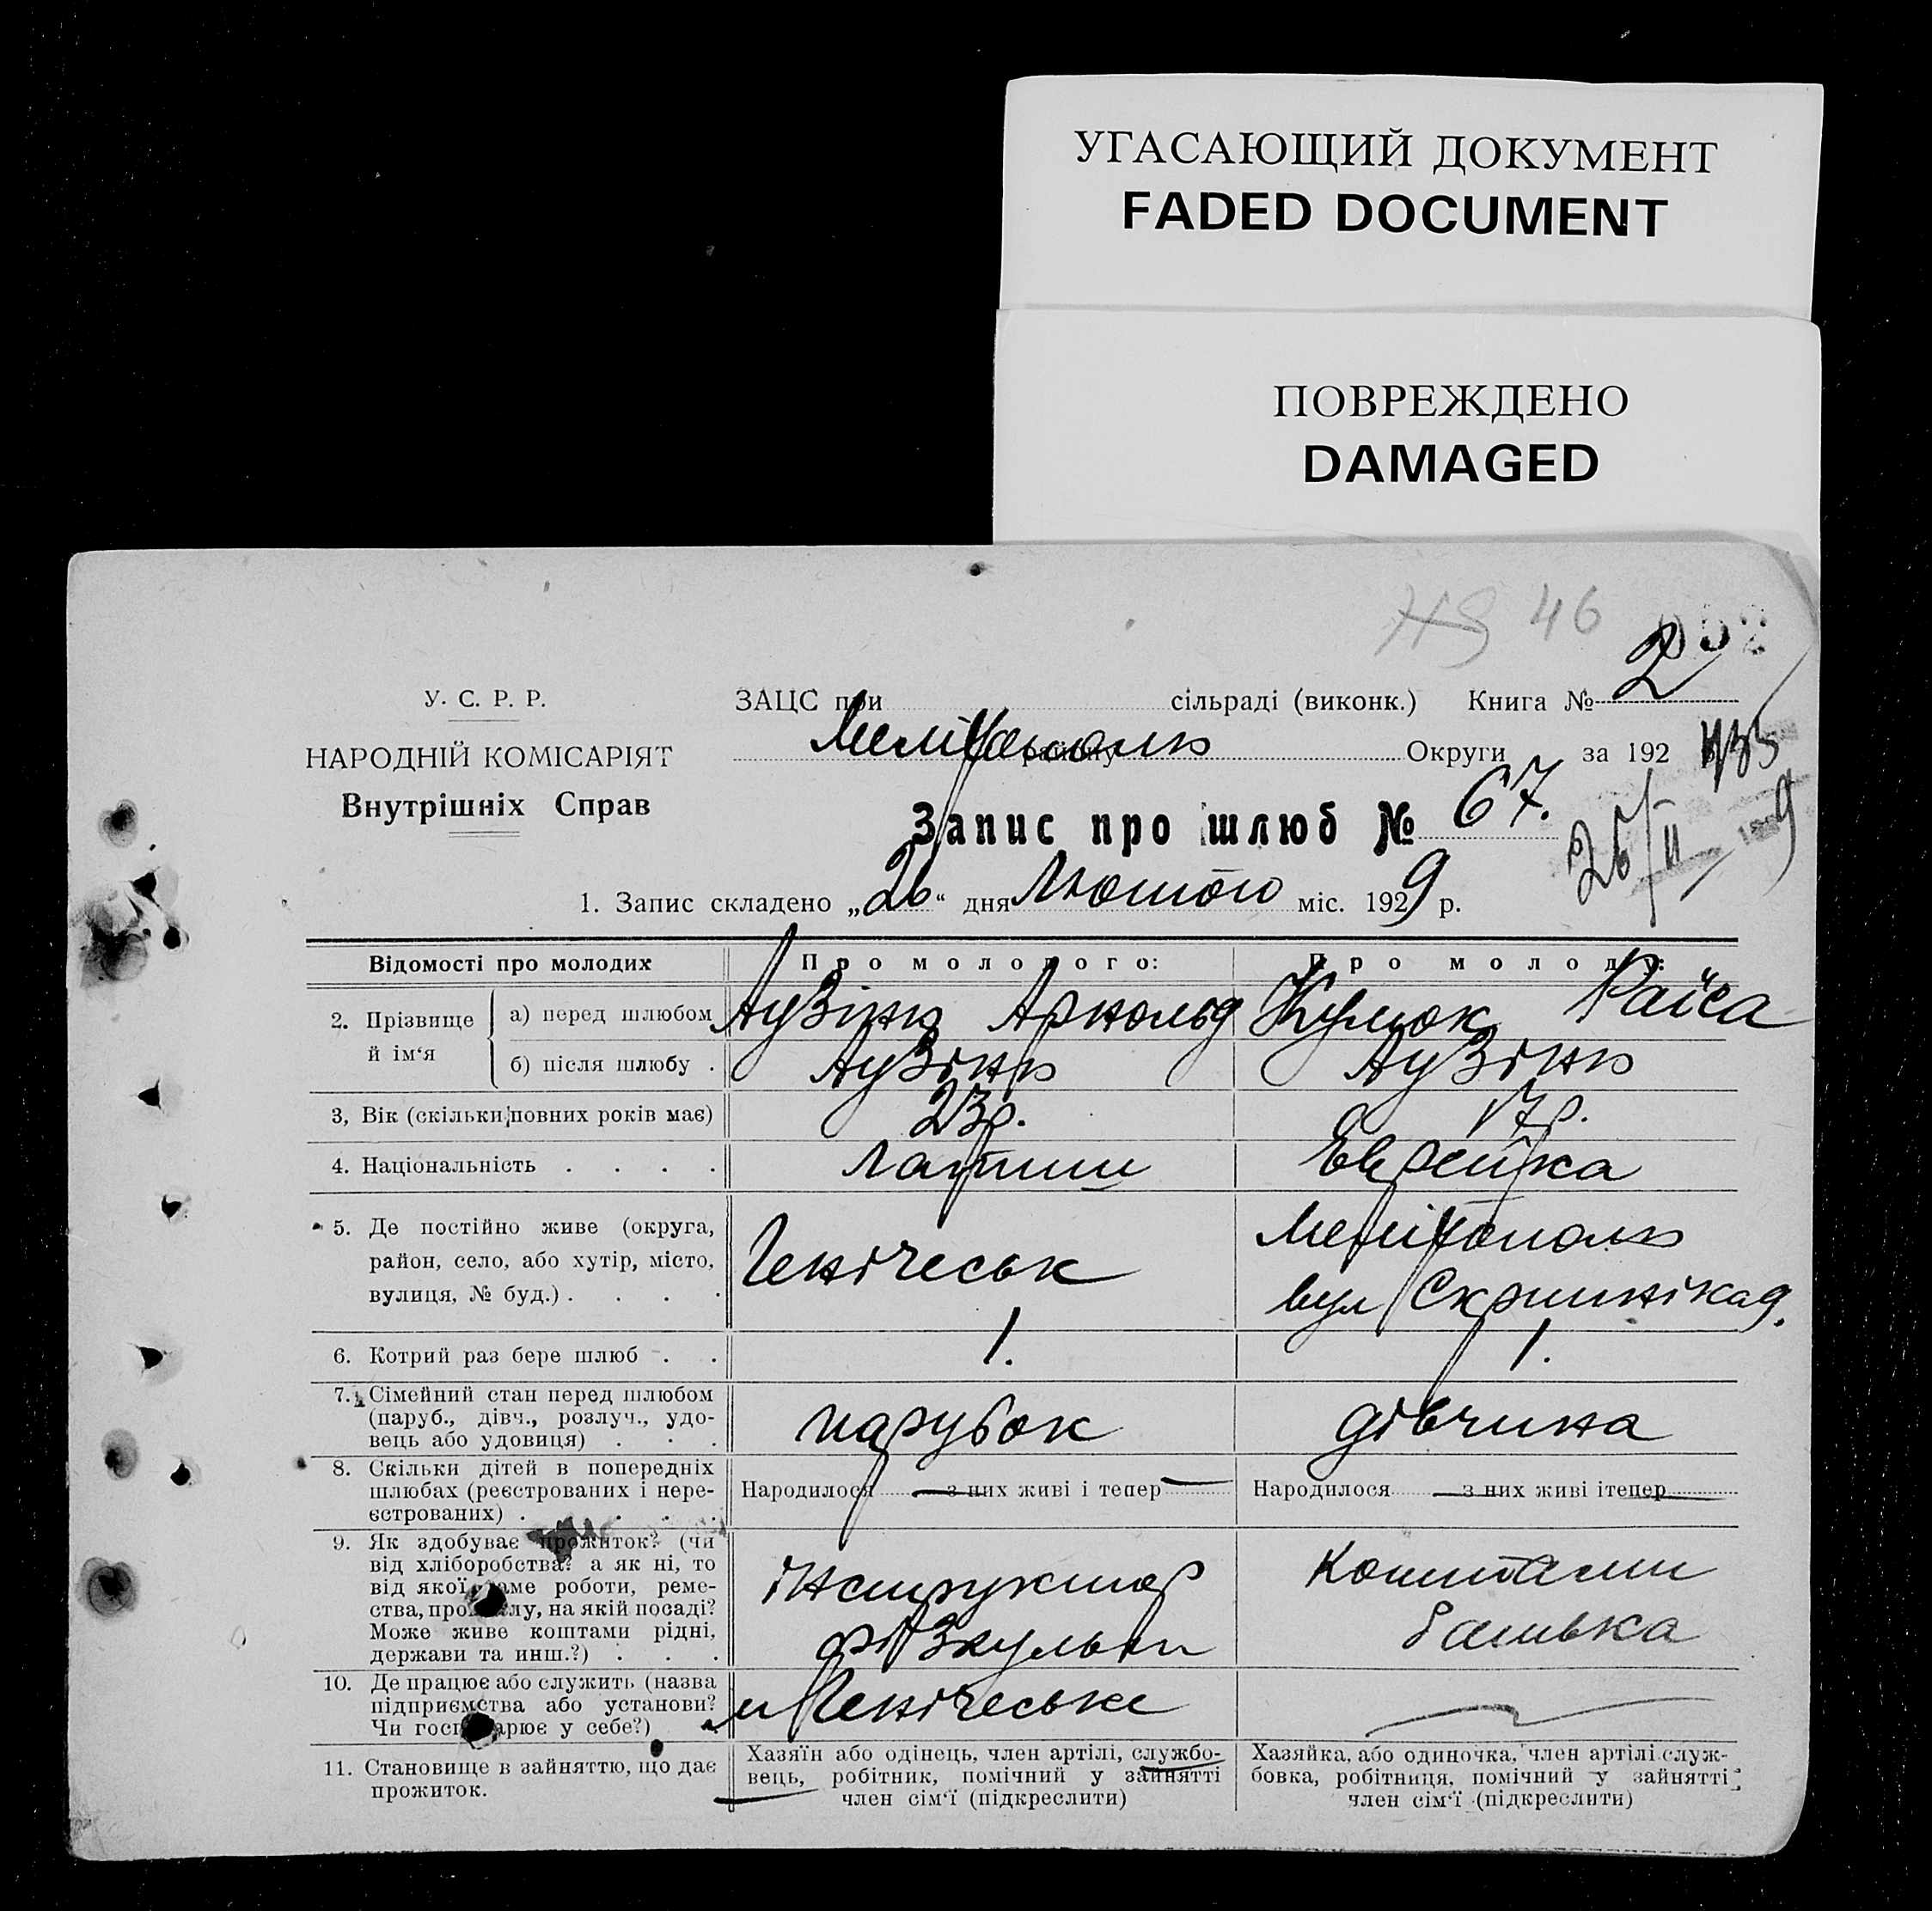 УГАСАЮЩИЙ ДОКУМЕНТ
FADED DOCUMENT
ПОВРЕЖДЕНО
DAMAGED
46
У. С. Р. Р.
ЗАЦС при сільраді (виконк.) Книга № 2
НАРОДНІЙ КОМІСАРІЯТ
Внутрішніх Справ
Мелітополь району Округи за 192
Запис про шлюб № 67.
26/II 9
1. Запис складено „26“ дня Лютого міс. 1929 р.
Відомості про молодих
Про молодого:
Про молоду:
2. Прізвище й ім‘я
а) перед шлюбом
Аузінь Арнольд
Раїса
б) після шлюбу .
Аузінь
Аузінь
3, Вік (скільки повних років має)
23р.
17р.
4. Національність . . . .
Латиш
Еврейка
5. Де постійно живе (округа,
район, село, або хутір, місто,
вулиця, № буд.) . . . .
Генічеськ
Мелітополь
вул Скрипніка 9.
6. Котрий раз бере шлюб . .
1.
1.
7. Сімейний стан перед шлюбом
(паруб., дівч., розлуч., удо-
вець або удовиця) . . .
парубок
дівчина
8. Скільки дітей в попередніх
шлюбах (реєстрованих і нере-
єстрованих) . . . . .
Народилося — з них живі і тепер —
Народилося — з них живі ітепер —
9. Як здобуває прожиток? (чи
від хліборобства? а як ні, то
від якої саме роботи, реме-
ства, промислу, на якій посаді?
Може живе коштами рідні,
держави та инш.?) . . .
інструктор
фізкульт
коштами
батька
10. Де працює або служить (назва
підприємства або установи?
Чи господарює у себе?)
м Генічеське
11. Становище в зайняттю, що дає
прожиток.
Хазяїн або одінець, член артілі, службо-
вець, робітник, помічний у зайнятті
член сім‘ї (підкреслити)
Хазяйка, або одиночка, член артілі служ-
бовка, робітниця, помічний у зайнятті
член сім‘ї (підкреслити)